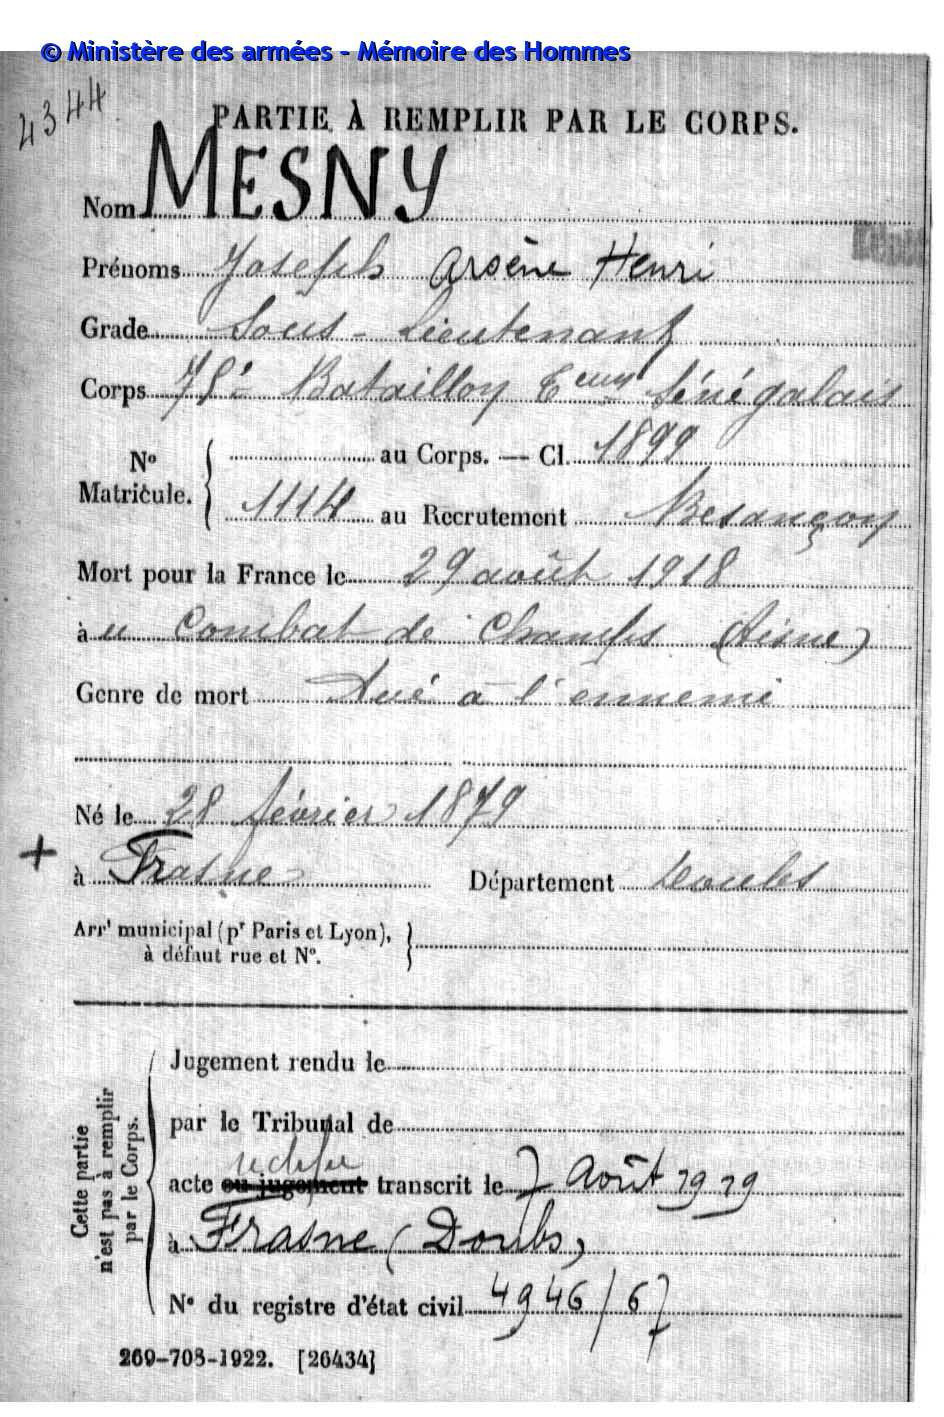 © Ministère des armées - Mémoire des Hommes
4344
PARTIE À REMPLIR PAR LE CORPS.
Nom MESNY
Prénoms Joseph Arsène Henri
Grade Sous-Lieutenant
Corps 78e Bataillon Ceurs Sénégalais
No Matricule. { au Corps. — Cl. 1899
1114 au Recrutement Besançon
Mort pour la France le 29 août 1918
à u Combat de Champs (Aisne)
Genre de mort Tué à l'ennemi
Né le 28 février 1879
+
à Frasne Département Doubs
Arrt municipal (pr Paris et Lyon),
à défaut rue et No.
Cette partie n'est pas à remplir par le Corps.
Jugement rendu le
par le Tribunal de
acte ou jugement transcrit le 7 Août 1919
à Frasne (Doubs)
No du registre d'état civil 4946/67
269-708-1922. [26434]